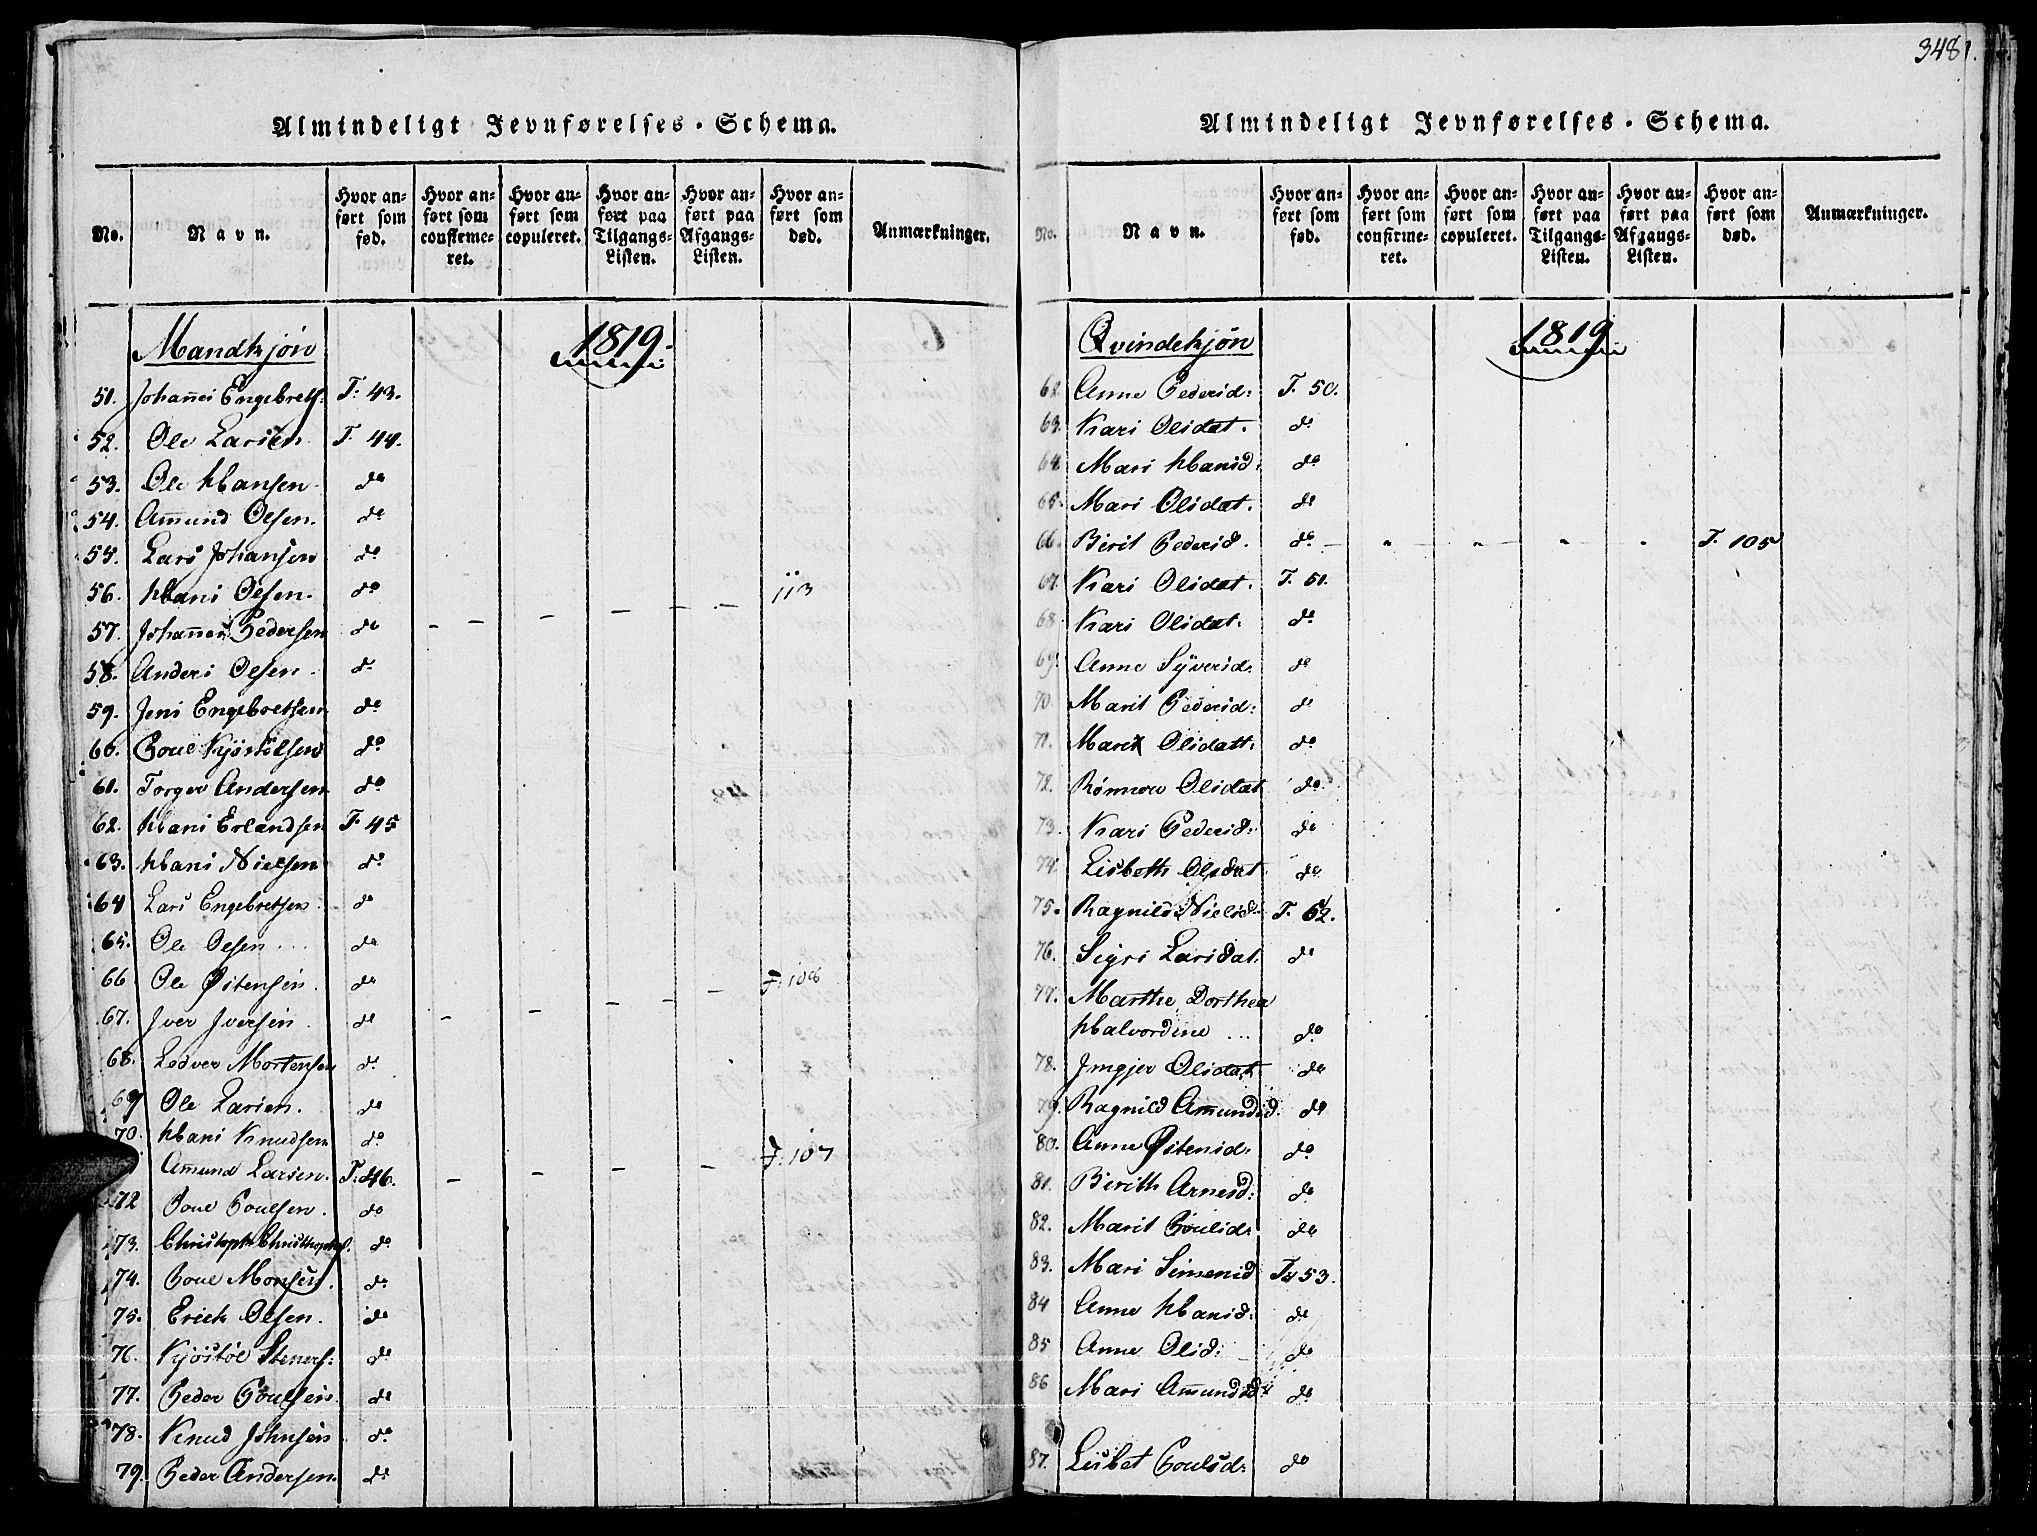 348
Almindeligt Jevnførelses-Schema.
No. Navn. Hvor anført som fød. Hvor anført som confirmeret. Hvor anført som copuleret. Hvor anført paa Tilgangs-Listen. Hvor anført paa Afgangs-Listen. Hvor anført som død. Anmærkninger.
Mandkjøn 1819
51. Johannes Engebrets. F. 43.
52. Ole Larsen F. 44.
53. Ole Hansen do
54. Amund Olsen. do
55. Lars Johansen do
56. Hans Olsen. do
57. Johannes Pedersen do - - - - - - 113
58. Anders Olsen. do
59. Jens Engebretsen do
60. Poul Kjöstölsen do
61. Torger Andersen do
62. Hans Erlandsen F. 45
63. Hans Nielsen do
64 Lars Engebretsen do
65. Ole Olsen ... do
66 Ole Østensen. do
67. Iver Iversen. do - - - - - F. 108
68. Ledver Mortensen do
69 Ole Larsen. do
70. Hans Knudsen do
Amund Larsen. F. 46. - - - - F. 107
72 Poul Poulsen. do
73. Christoph Christhophs. do
74. Poul Monsen. do
75. Erick Olsen. do
76. Kjöstöl Steners: do
77. Peder Poulsen. do
78. Knud Johnsen do
79. Peder Andersen. do
Almindeligt Jevnførelses-Schema.
No. Navn. Hvor anført som fød. Hvor anført som confirmeret. Hvor anført som copuleret. Hvor anført paa Tilgangs-Listen. Hvor anført paa Afgangs-Listen. Hvor anført som død. Anmærkninger.
Qvindekjøn 1819
62. Anne Pedersd: F. 50.
63. Kari Olsdat. do
64 Mari Hansd: do
65. Mari Olsdat. do
66. Birit Pedersd. do - " - " - " - " F. 105
67. Kari Olsdat. F. 51.
68. Kari Olsdat. do
69. Anne Syversd: do
70. Marit Pedersd: do
71. Marit Olsdatt: do
72. Rönnou Olsdat do
73. Kari Pedersd: do
74. Lisbeth Olsdat do
75. Ragnild Nielsd. F. 52.
76. Sigri Larsdat. do
77. Marthe Dorthea
Halvordine ... do
78. Ingjer Olsdat. do
79. Ragnild Amundsd. do
80. Anne Østensd: do
81. Birith Arnesd: do
82. Marit Poulsd: do
83. Mari Simensd F. 53.
84 Anne Hansd: do
85 Anne Olsd: do
86 Mari Amundsd: do
87. Lisbet Poulsd: do